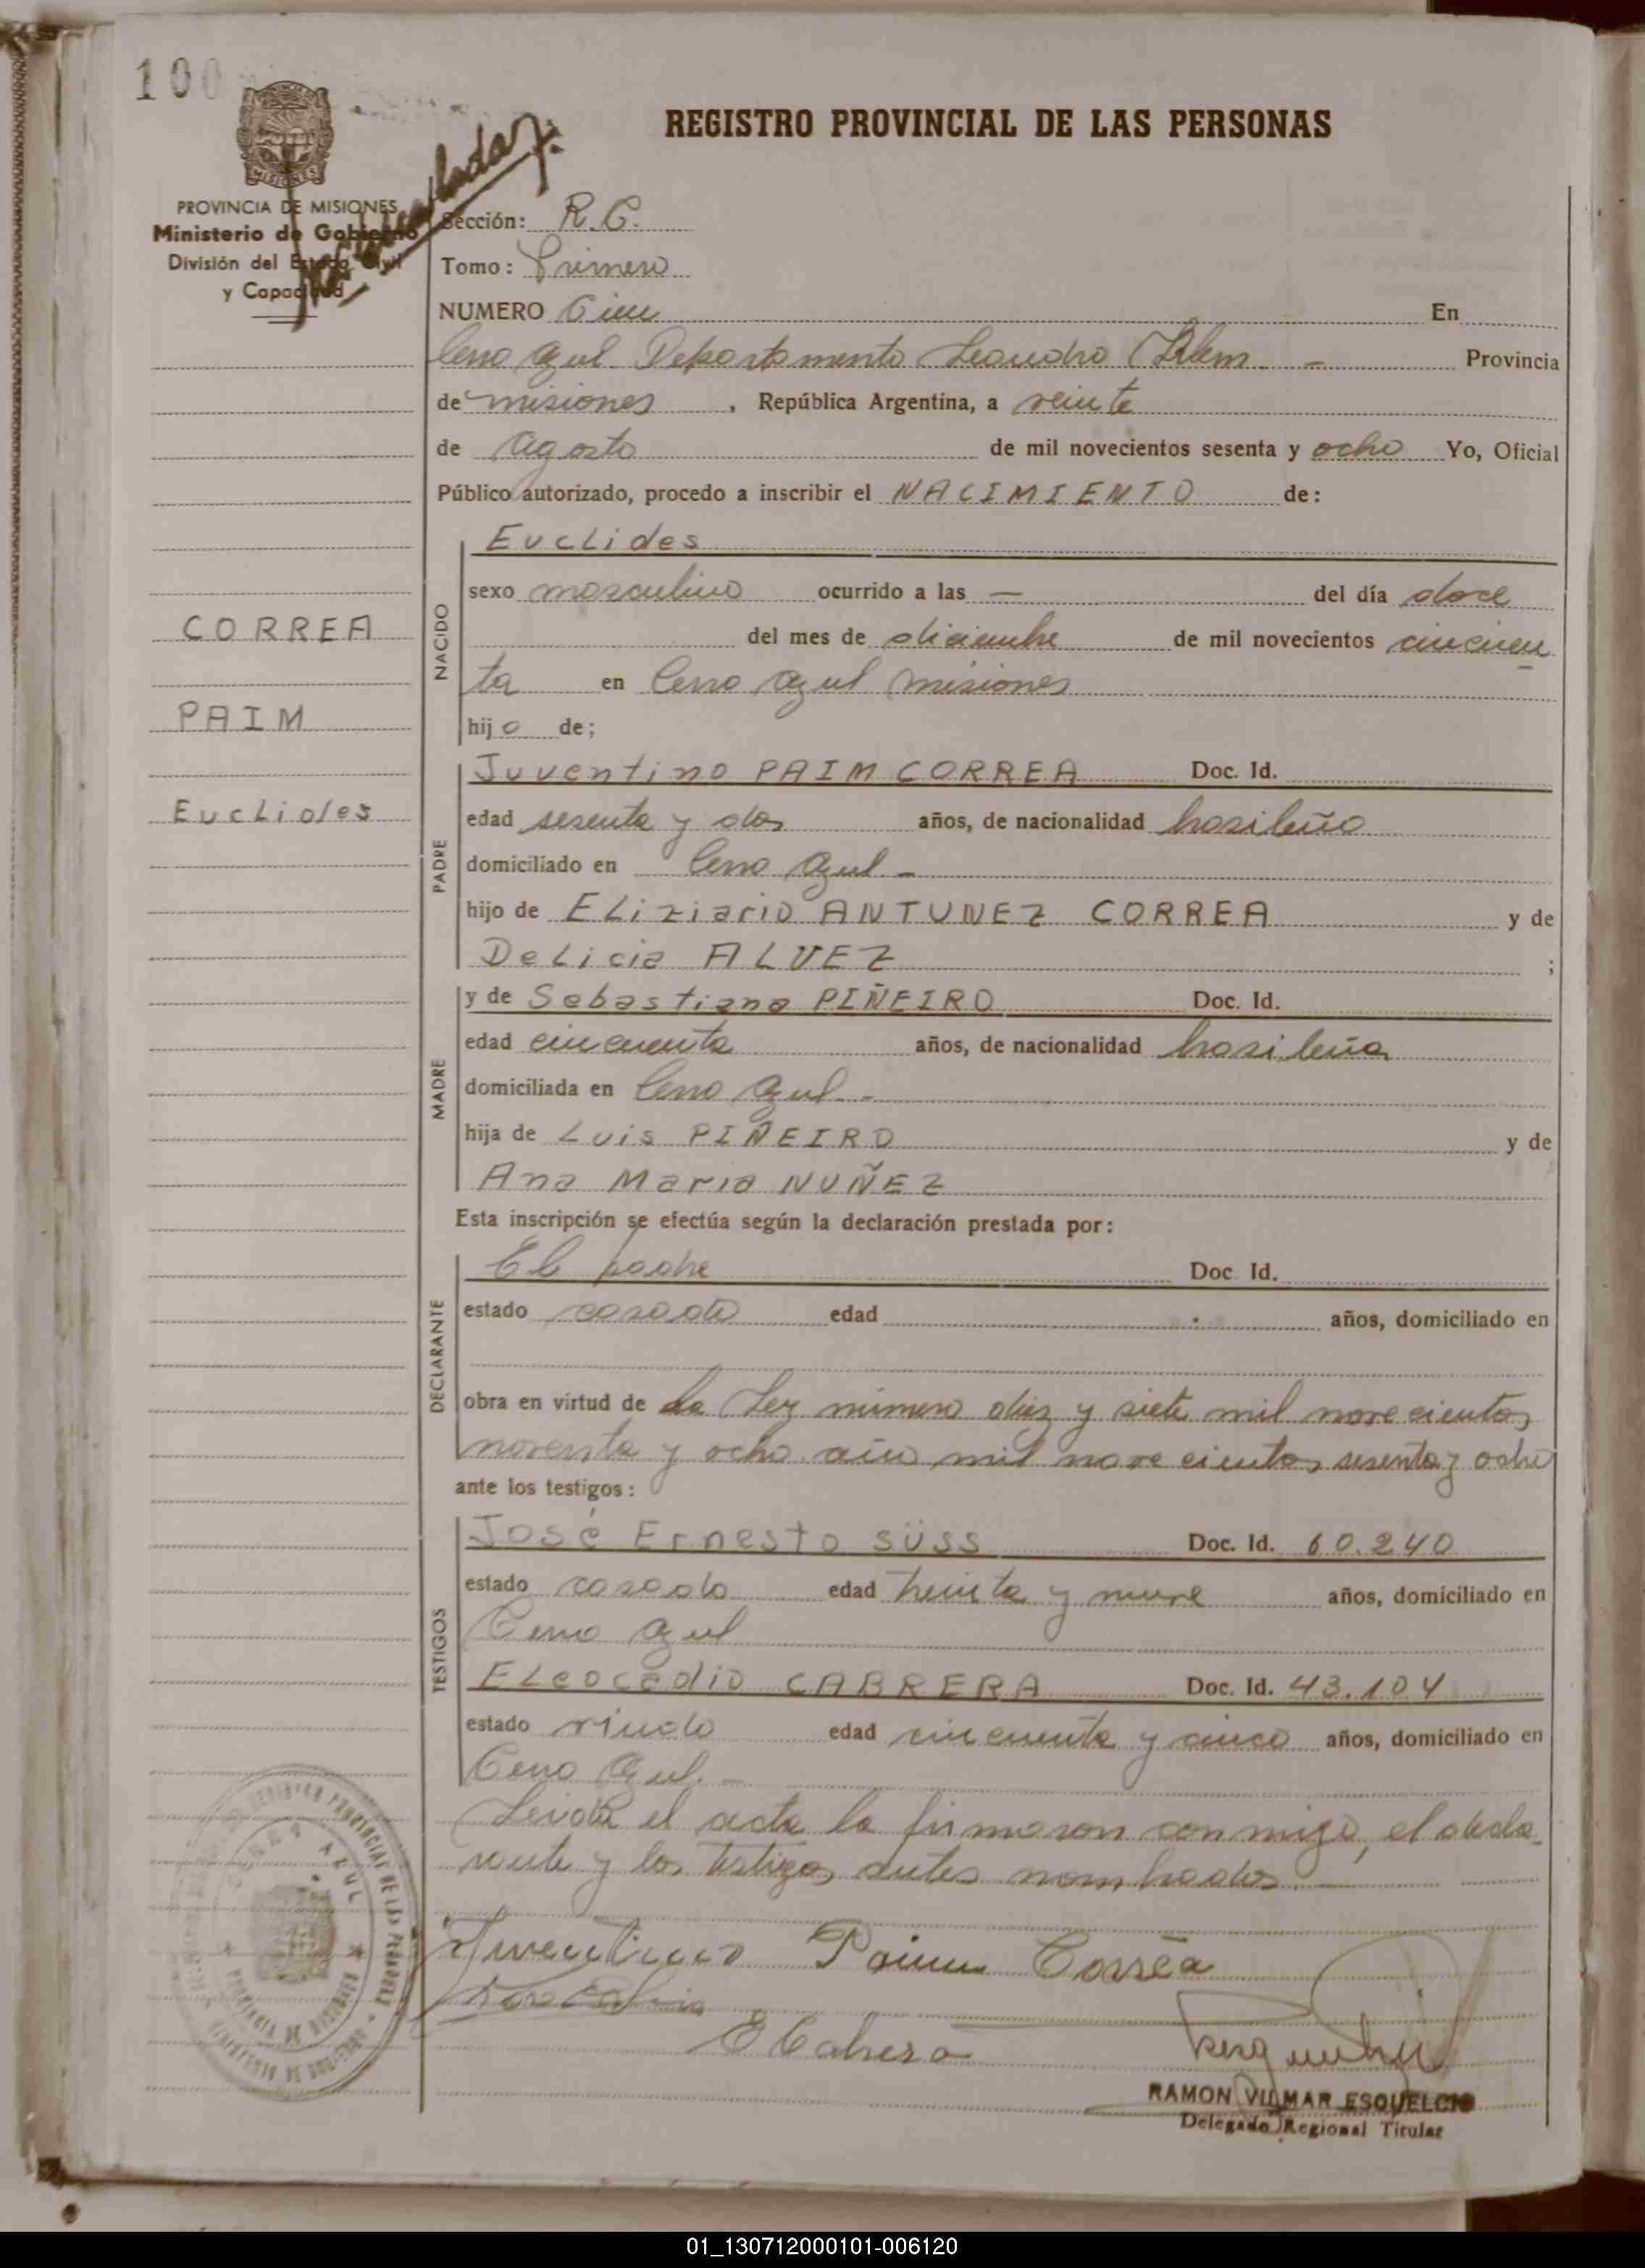 100
REGISTRO PROVINCIAL DE LAS PERSONAS
MISIONES
PROVINCIA DE MISIONES
Ministerio de Gobierno
División del Estado Civil
y Capacidad
Sección: R.C.
Tomo: Primero
NUMERO Cien En
Cerro Azul Departamento Leandro Alem. - Provincia
de misiones, República Argentina, a veinte
de agosto de mil novecientos sesenta y ocho Yo, Oficial
Público autorizado, procedo a inscribir el NACIMIENTO de:
NACIDO
Euclides
sexo masculino ocurrido a las — del día doce
del mes de diciembre de mil novecientos cincuen
ta en Cerro Azul misiones
hijo de;
CORREA
PAIM
Euclides
PADRE
Juventino PAIM CORREA Doc. Id.
edad sesenta y dos años, de nacionalidad brasileño
domiciliado en Cerro Azul -
hijo de Eliziario ANTUNEZ CORREA y de
Delicia ALVEZ ;
MADRE
y de Sebastiana PIÑEIRO Doc. Id.
edad cincuenta años, de nacionalidad brasileña
domiciliada en Cerro Azul. -
hija de Luis PIÑEIRO y de
Ana Maria NUÑEZ
Esta inscripción se efectúa según la declaración prestada por:
DECLARANTE
El padre Doc. Id.
estado casado edad años, domiciliado en
obra en virtud de la Ley número diez y siete mil novecientos
noventa y ocho año mil novecientos sesenta y ocho
ante los testigos:
TESTIGOS
José Ernesto SÜSS Doc. Id. 60.240
estado casado edad treinta y nueve años, domiciliado en
Cerro Azul
Eleocadio CABRERA Doc. Id. 43.104
estado viudo edad cincuenta y cinco años, domiciliado en
Cerro Azul. -
Leida el acta la firmaron conmigo, el decla-
rante y los testigos antes nombrados. —
Juventino Paim Corrêa
E Cabrera
RAMON VILMAR ESQUELCIO
Delegado Regional Titular
CERRO AZUL
PROVINCIA DE MISIONES
01_130712000101-006120